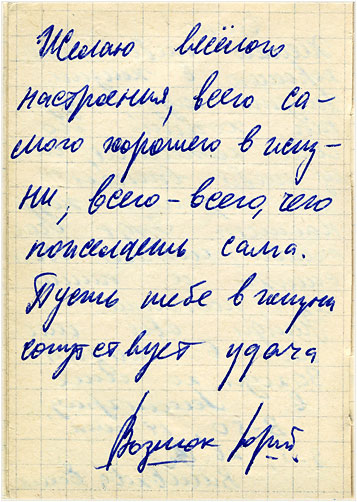 Желаю весёлого
настроения, всего са-
мого хорошего в жиз-
ни, всего-всего, чего
пожелаешь сама.
Пусть тебе в жизни
сопутствует удача
Возняк Юрий.